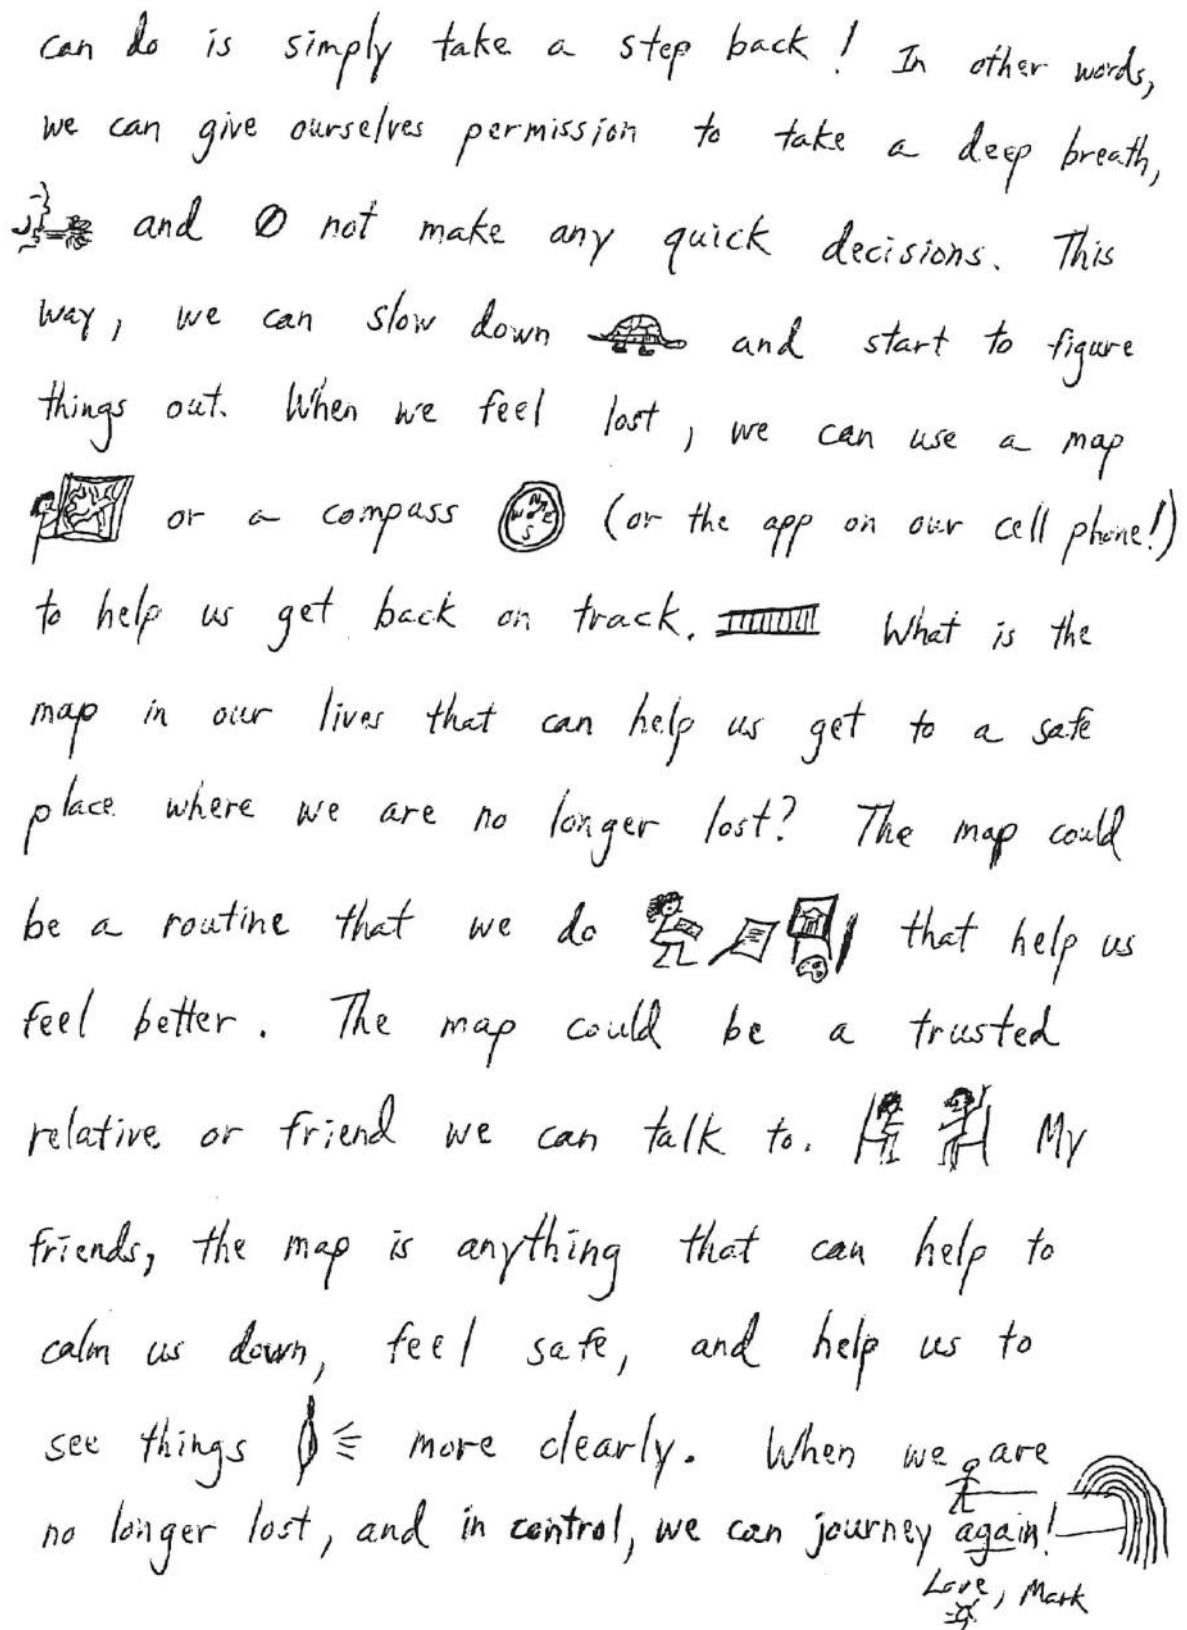 can do is simply take a step back! In other words,
we can give ourselves permission to take a deep breath,
and not make any quick decisions. This
way, we can slow down and start to figure
things out. When we feel lost, we can use a map
or a compass N E S W (or the app on our cell phone!)
to help us get back on track. What is the
map in our lives that can help us get to a safe
place where we are no longer lost? The map could
be a routine that we do that help us
feel better. The map could be a trusted
relative or friend we can talk to. My
friends, the map is anything that can help to
calm us down, feel safe, and help us to
see things more clearly. When we are
no longer lost, and in control, we can journey again!
Love, Mark